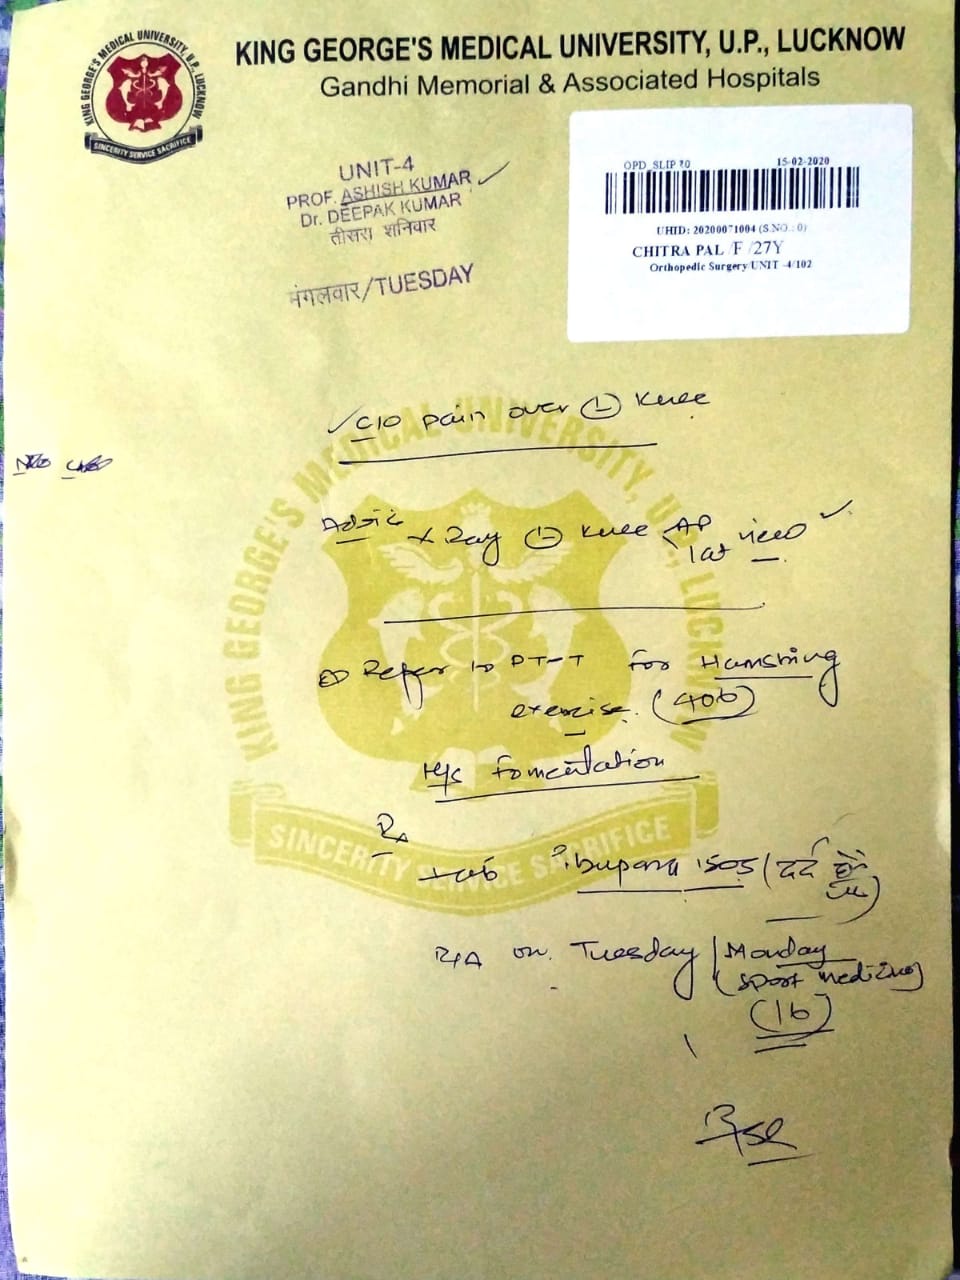 KING GEORGE'S MEDICAL UNIVERSITY, U.P., LUCKNOW
Gandhi Memorial & Associated Hospitals
KING GEORGE'S MEDICAL UNIVERSITY, U.P., LUCKNOW
SINCERITY SERVICE SACRIFICE
UNIT-4
PROF. ASHISH KUMAR
Dr. DEEPAK KUMAR
तीसरा शनिवार
मंगलवार/TUESDAY
OPD_SLIP ₹0 15-02-2020
UHID: 20200071004 (S.NO.: 0)
CHITRA PAL /F /27Y
Orthopedic Surgery/UNIT -4/102
C/O pain over (L) Knee
Advice X Ray (L) Knee AP
lat view
Refer to for Hamstring
exercise. (406)
H/c Fomentation
Rx
Tab (दर्द
R/A on Tuesday / Monday
(sport medicine)
(16)
KING GEORGE'S MEDICAL UNIVERSITY, U.P., LUCKNOW
SINCERITY SERVICE SACRIFICE